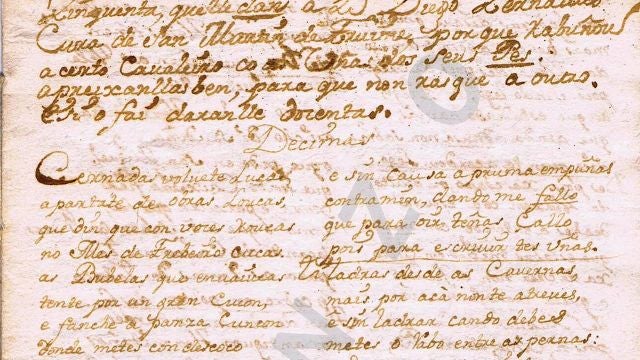 Cinquenta, que lle dan a D. Diego
Cura de San Martín de Fruime, porque
a certo Cavaleiro co as Uñas dos seus Pes.
apreixanllas ben, para que non rasque a outro.
Esto fai daranlle docentas.
Decimas
Cernada volvete Lucas,
apartate de obras Loucas,
que din que con voces roucas
no Mes de Frebeiro cucas.
as Bubelas que
tente por un gran Cucon,
e fanche a panza
donde metes con descoco
e sin causa a pruma empuñas
contra min, dando me fallo
que para oir, teñas Callo
pois para escrivir tes unas.
Ladras desde as Cavernas,
mais por acà non te atreves,
e sin ladrar cando debes
metes o rabo entre as pernas: